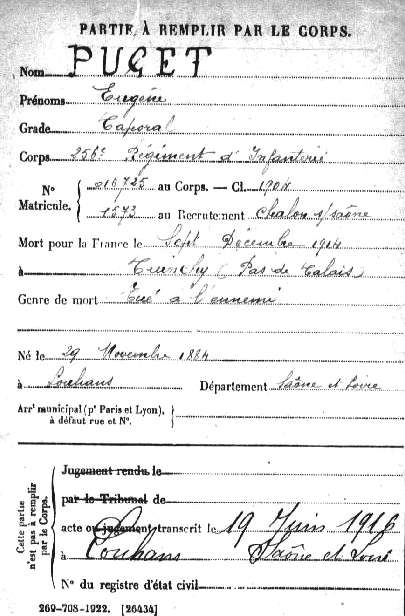 PARTIE À REMPLIR PAR LE CORPS.
Nom PUGET
Prénoms Eugène
Grade Caporal
Corps 256e Régiment d'Infanterie
N° Matricule. { 016725 au Corps. — Cl. 1904
1573 au Recrutement Chalon s/Saône
Mort pour la France le Sept Décembre 1914
à Cuinchy (Pas de Calais)
Genre de mort Tué à l'ennemi
Né le 29 Novembre 1884
à Louhans Département Saône et Loire
Arrt municipal (pr Paris et Lyon), à défaut rue et N°. }
Cette partie n'est pas à remplir par le Corps.
Jugement rendu le
par le Tribunal de
acte ou jugement transcrit le 19 Juin 1916
à Louhans Saône et Loire
N° du registre d'état civil
269-708-1922. [26434]